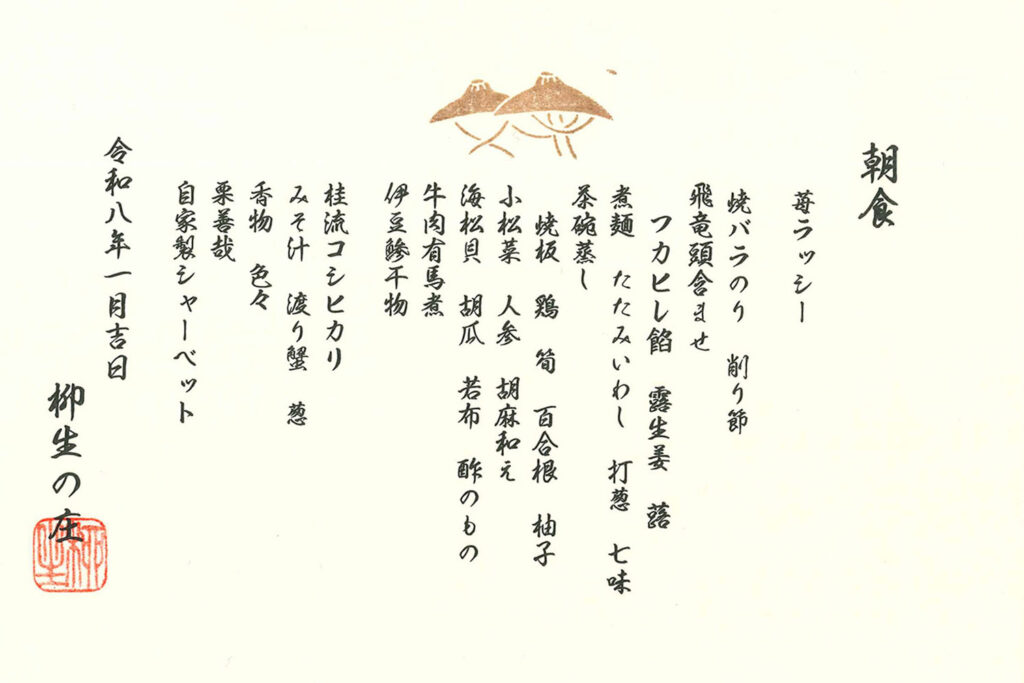 朝食
苺ラッシー
焼バラのり 削り節
飛竜頭含ませ
フカヒレ餡 露生姜 蕗
煮麺 たたみいわし 打葱 七味
茶碗蒸し
焼板 鶏 筍 百合根 柚子
小松菜 人参 胡麻和え
海松貝 胡瓜 若布 酢のもの
牛肉有馬煮
伊豆鯵干物
桂流コシヒカリ
みそ汁 渡り蟹 葱
香物 色々
栗善哉
自家製シャーベット
令和八年一月吉日
柳生の庄